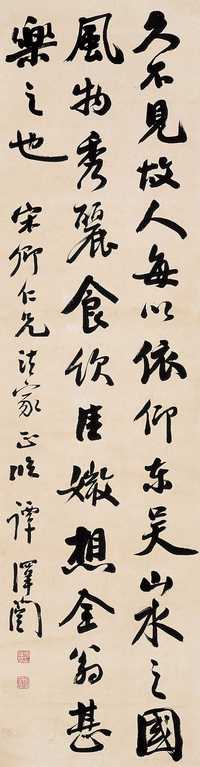 久不見故人每以依仰東吳山水之國
風物秀麗食飲佳媺想全翁甚
樂之也
宋卿仁兄法家正臨譚澤闓